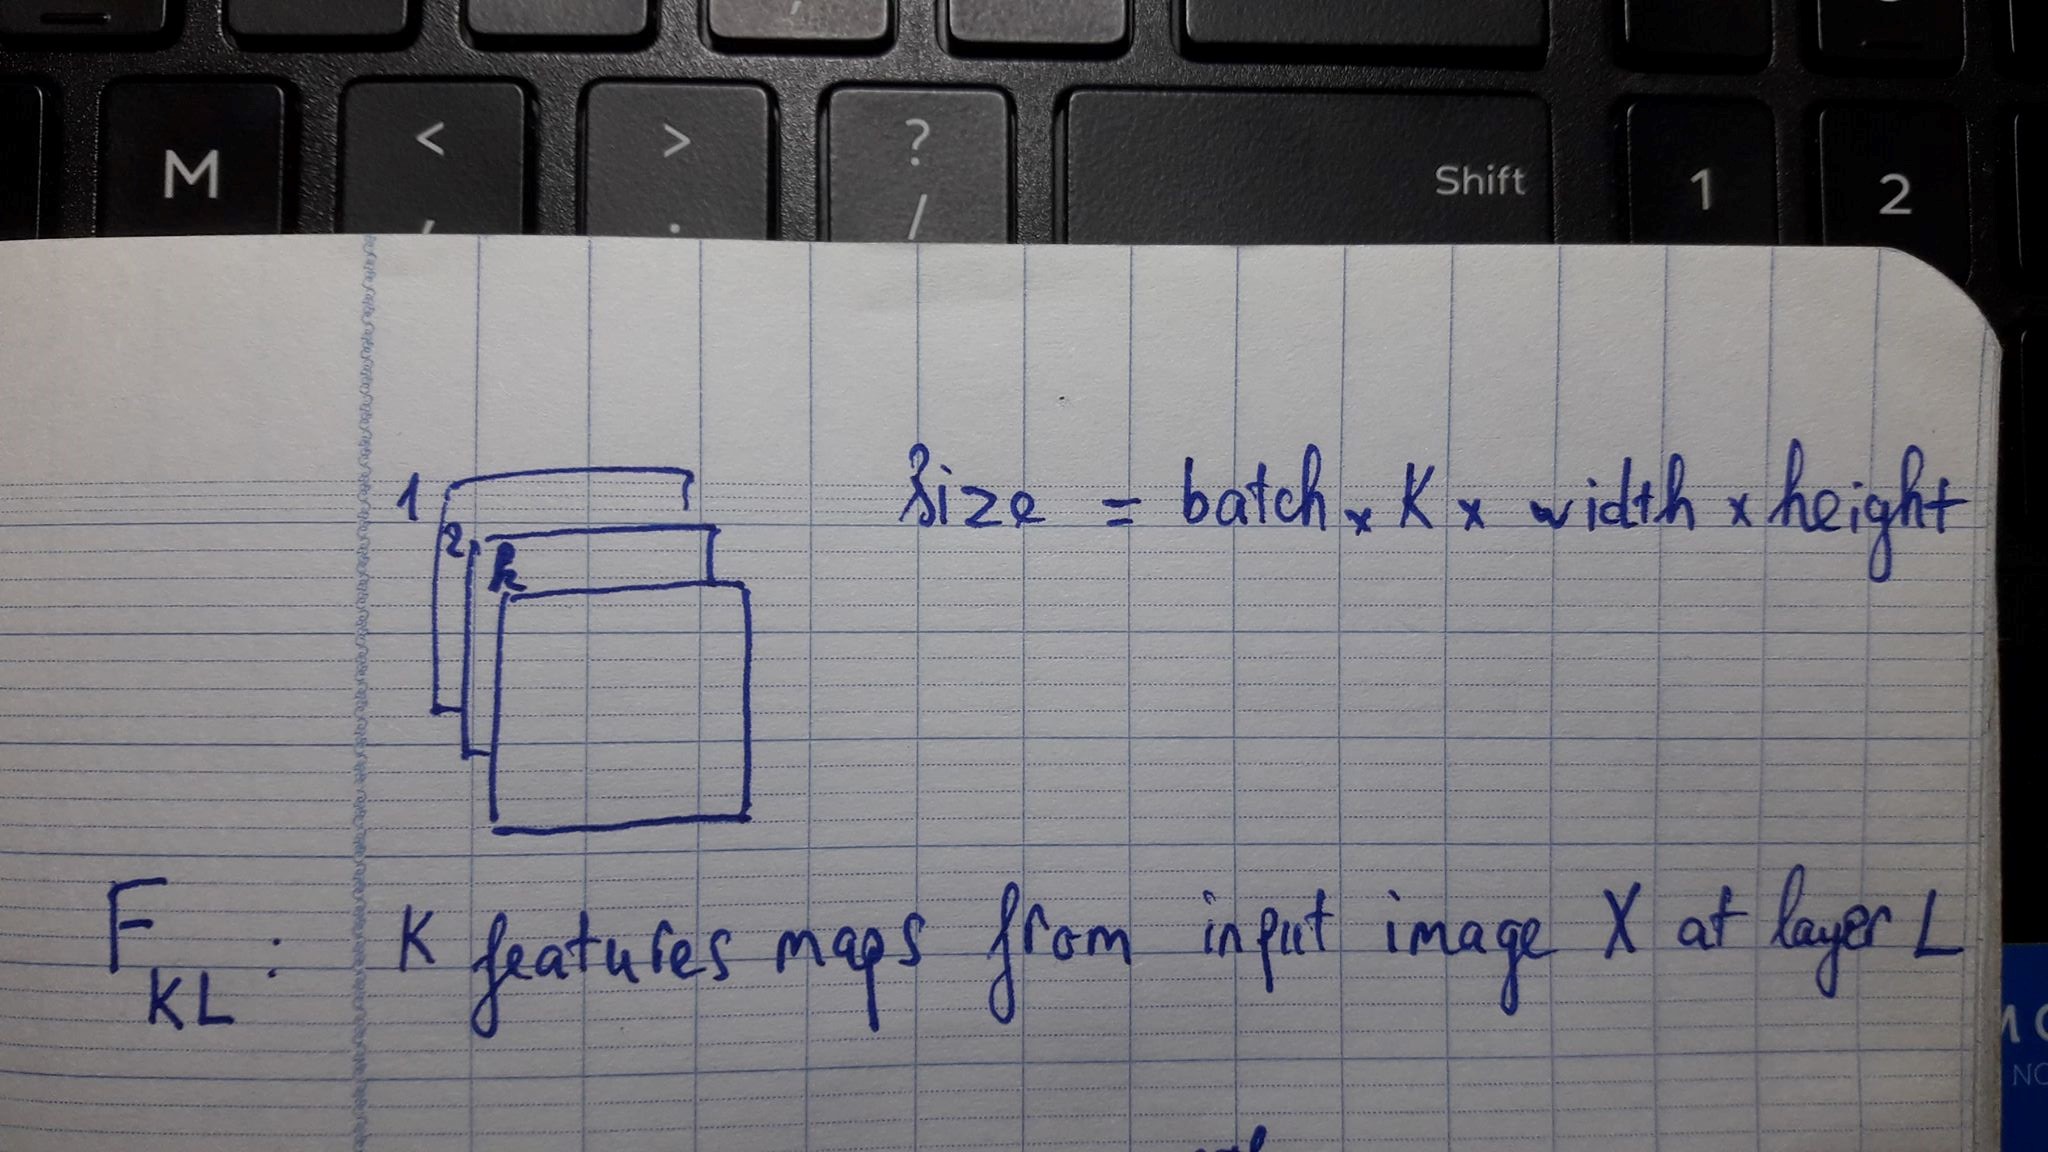 M < , > . ? / Shift 1 2
1 Size = batch x K x width x height
2
k
F KL : K features maps from input image X at layer L